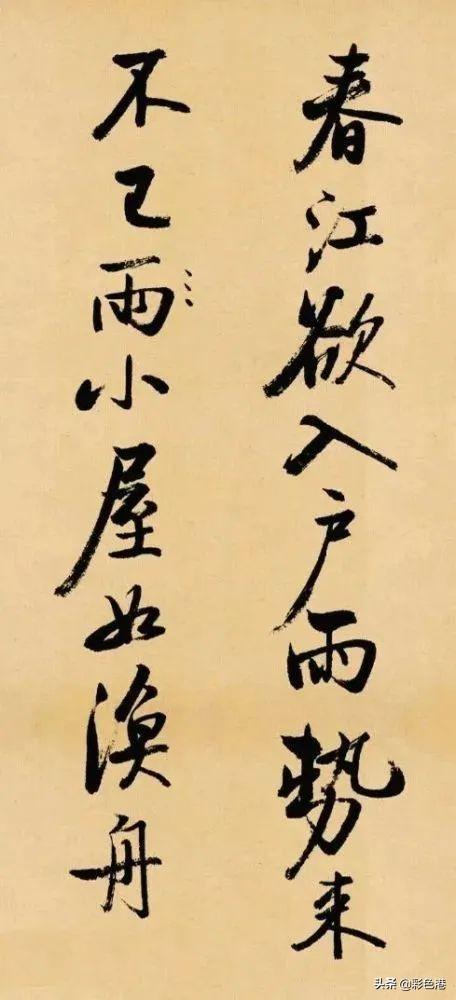 春江欲入户雨勢来
不已雨小屋如漁舟
头条 @彩色港